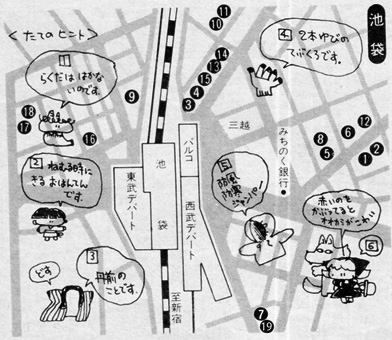 池袋
<たてのヒント>
1
らくだは はかな
いのです。
2
ねむる時に
きる おはんてん
です。
3
丹前の
ことです。
どす
4
2本ゆびの
てぶくろです。
5
防風
防寒
ジャンパー
6
赤いのを
かぶってると
オオカミがこわい
11
10
14
13
15
4
3
9
18
17
16
12
6
8
5
1
2
7
19
三越
みちのく銀行
パルコ
池袋
東武デパート
西武デパート
至新宿